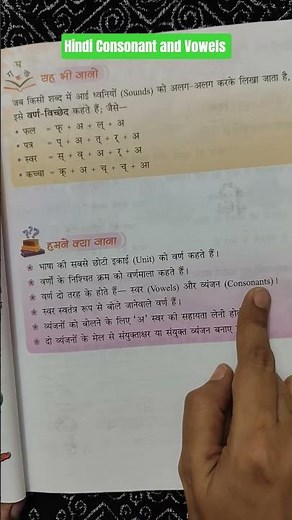 Hindi Consonant and Vowels
यह भी जानो
जब किसी शब्द में आई ध्वनियों (Sounds) को अलग-अलग करके लिखा जाता है,
इसे वर्ण-विच्छेद कहते हैं; जैसे—
• फल = फ् + अ + ल् + अ
• पत्र = प् + अ + त् + र् + अ
• स्वर = स् + व् + अ + र् + अ
• कच्चा = क् + अ + च् + च् + आ
हमने क्या जाना
* भाषा की सबसे छोटी इकाई (Unit) को वर्ण कहते हैं।
* वर्णों के निश्चित क्रम को वर्णमाला कहते हैं।
* वर्ण दो तरह के होते हैं— स्वर (Vowels) और व्यंजन (Consonants)।
* स्वर स्वतंत्र रूप से बोले जानेवाले वर्ण हैं।
* व्यंजनों को बोलने के लिए 'अ' स्वर की सहायता लेनी
* दो व्यंजनों के मेल से संयुक्ताक्षर या संयुक्त व्यंजन बनाए